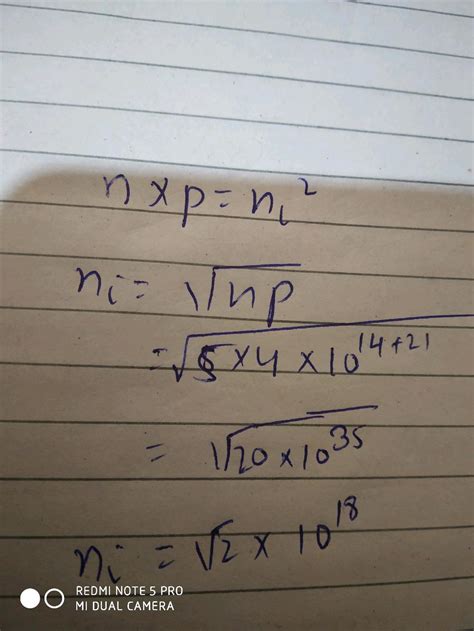 n × p = nᵢ²
nᵢ = √np
= √5 × 4 × 10¹⁴⁺²¹
= √20 × 10³⁵
nᵢ = √2 × 10¹⁸
REDMI NOTE 5 PRO
MI DUAL CAMERA